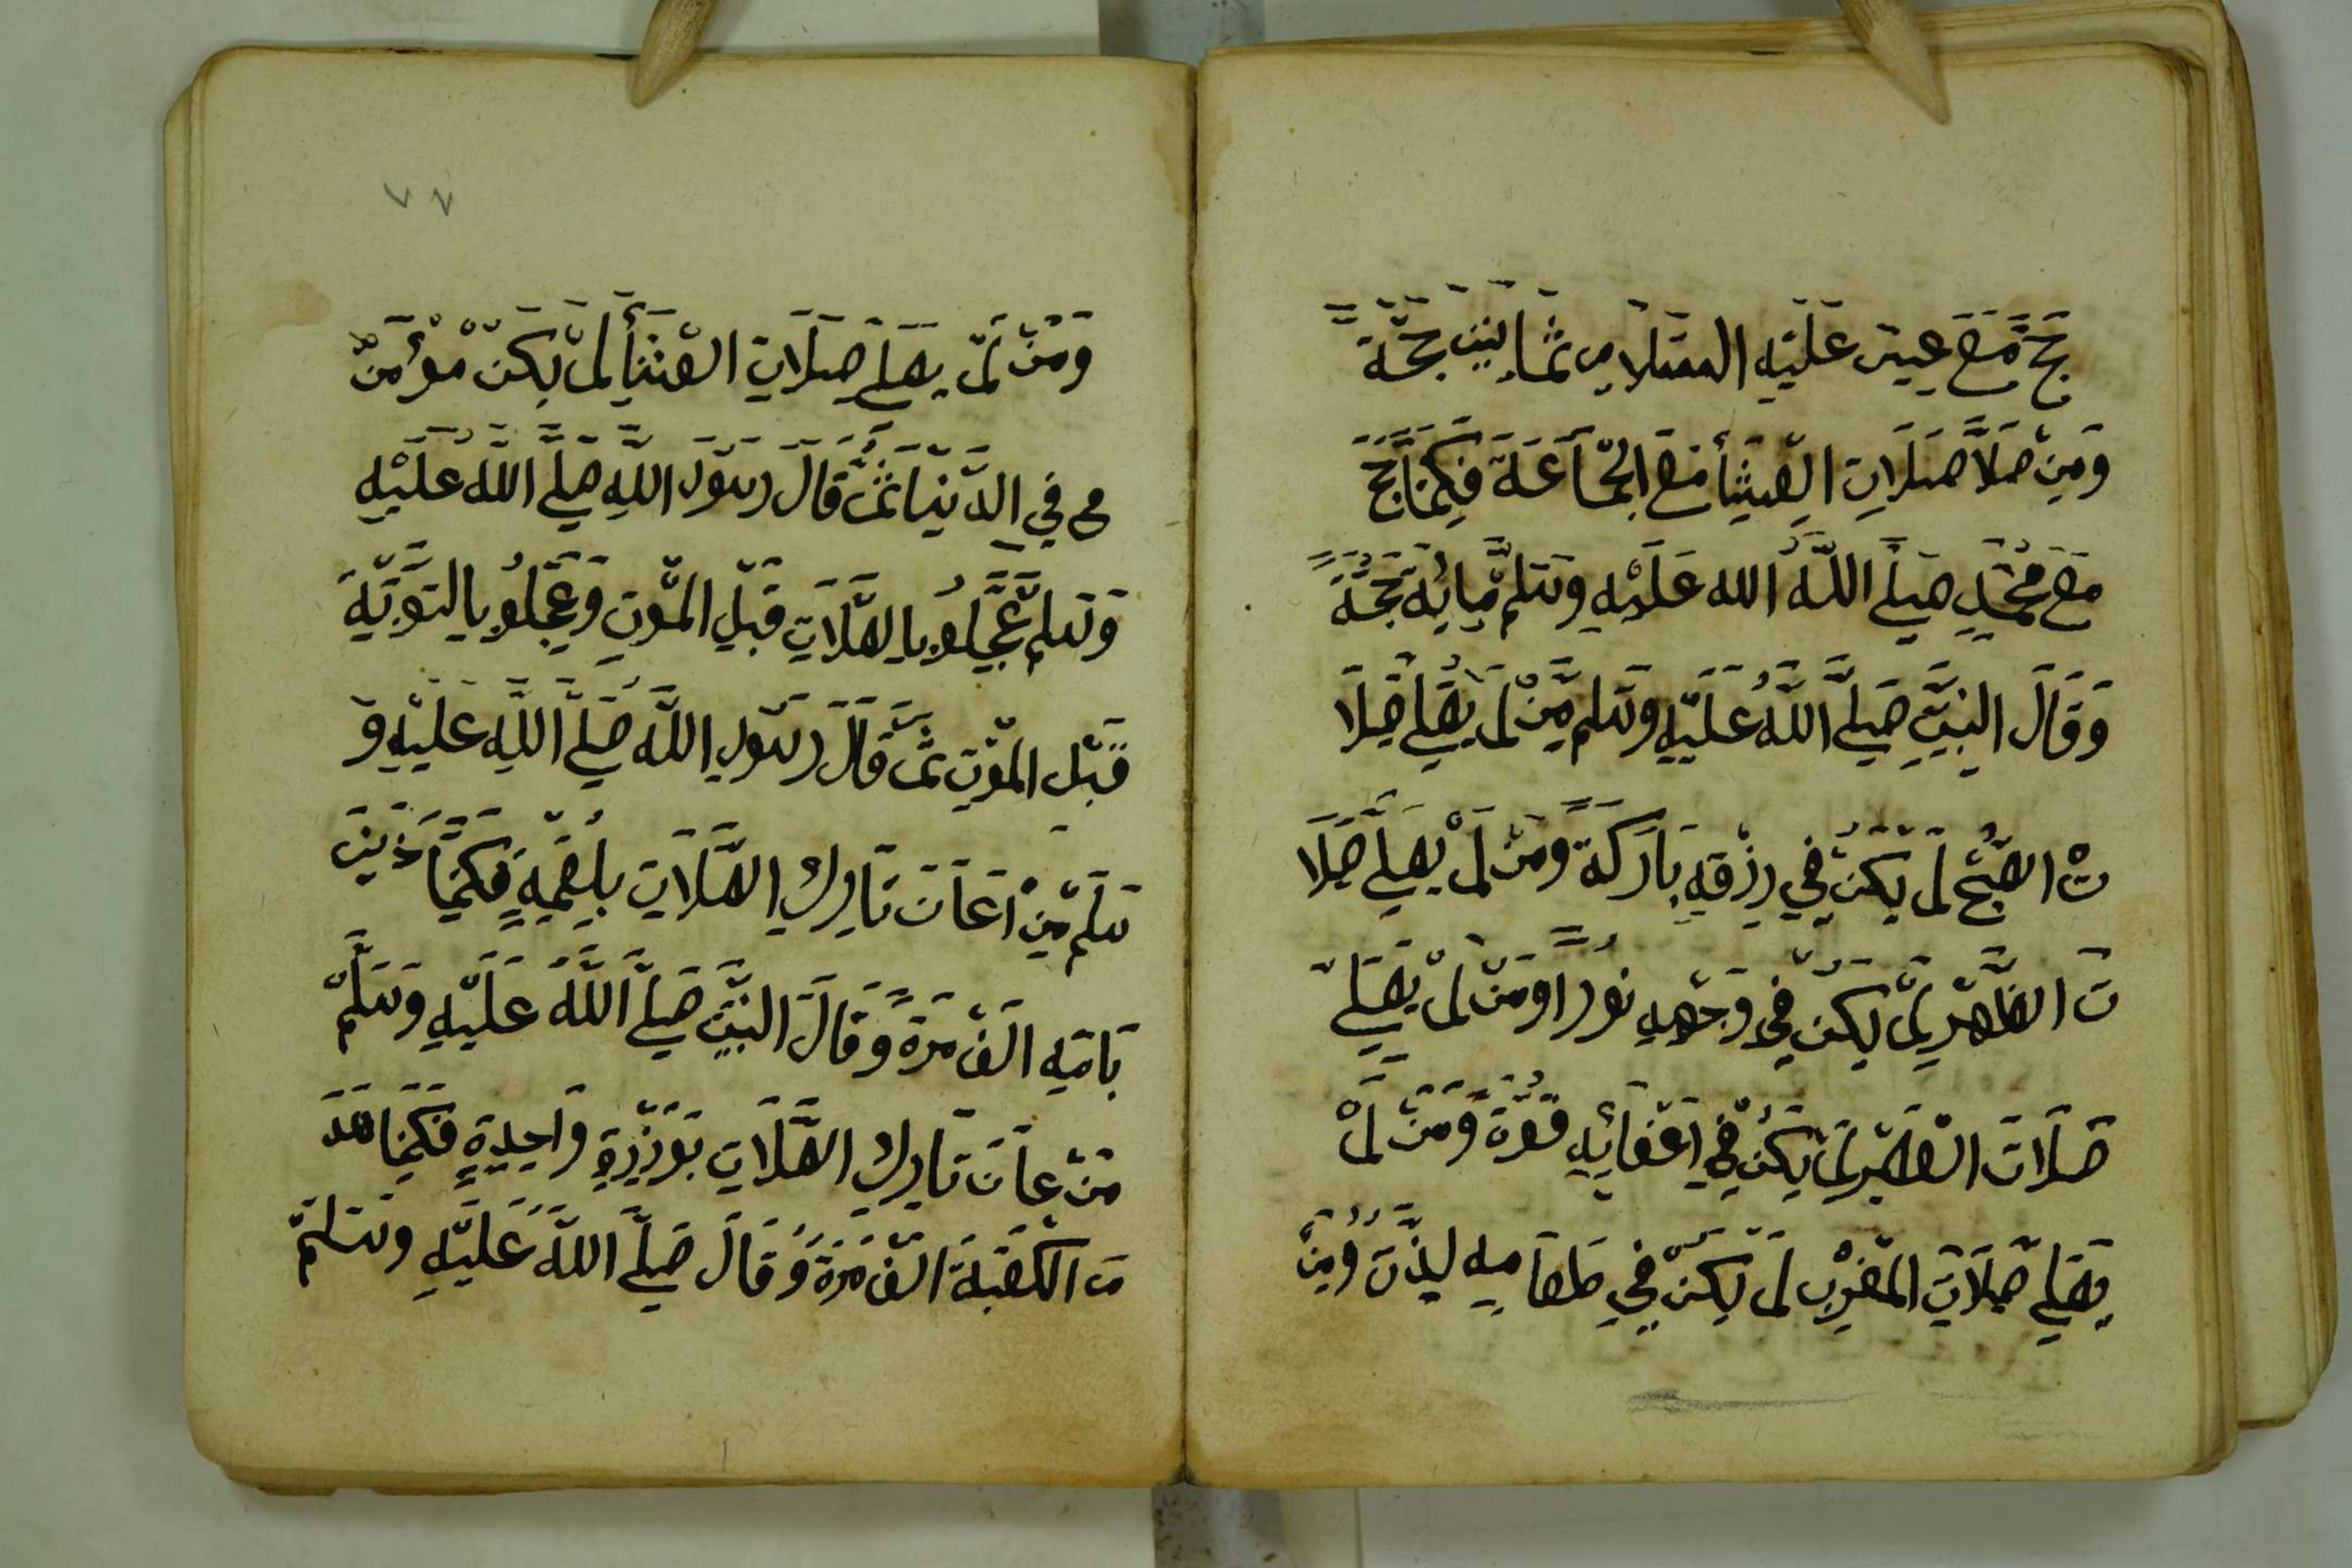 حَجَّ مَعَ عِيسَ عَلَيْهِ السَّلَامِ ثَمَانِينَ حَجَّةً
وَمِنْ صَلَّا صَلَاتِ الْعِيشَأ مَعَ الْجَمَاعَةَ فَكَمَا حَجَّ
مَعَ مُحَمَّدٍ صَلَّى اللَّهُ الله عَلَيْهِ وَسَلَّمْ مِائِةَ حَجَّةً
وَقَالَ النَّبِيِّ صَلَّى اللَّهُ عَلَيْهِ وَسَلَّمَ مِّنْ لَمْ يُصَلِّي صَلَا
تْ الصُّبْحْ لَمْ يَكُنْ فِي رِزْقِهِ بَارَكَةً وَمَنْ لَمْ يصَلِّي صَلَا
تَ الظُّهْرِ لَمْ يَكُنْ فِي وَجْهِهِ نُورًا وَمَنْ لَمْ يصَلِّي
صَلَاتَ الْعَصْرِ لَمْ يَكُنْ فِي اَعْضَائِهِ قُوَّةً وَمَنْ لَمْ
يصَلِّي صَلَاتِ الْمَغْرِبْ لَمْ يَكُنْ فِي طَعَامِهِ لِذَّتَ وُمِنْ
٧٧
وَمَنْ لَمْ يصَلِّي صَلَاتِ الْعِشَأ لَمْ يَكُنْ مُؤْمَنٌ
فِي الدُّنْيَا ثُمَّ قَالَ رَسُولَ اللَّهِ صَلَّى اللَّهُ عَلَيْهِ
وَسَلَّمْ عَجِّلُو بِالصَّلَاتِ قَبْلِ الْمَوْتِ وَعَجِّلُو بِالتَّوْبَةِ
قَبْلِ الْمَوْتِ ثُمَّ قَالَ رَسُولِ اللَّهَ صَلَّى اللَّهِ عَلَيْهِ وَ
سَلَّمْ مِنْ اَعَانَ تَارِكِ الصَّلَاتِ بِلُقْمِةٍ فَكَمَا زَيْنَ
بَامِّهِ اَلْفَ مَرَةً وَقَالَ النَّبِيِّ صَلَّى اللَّهُ عَلَيْهِ وَسَلَّمْ
مَنْ عَانَ تَارِكِ الصَّلَاتِ وَاحِدِةٍ فَكَمَا هَدَ
مَ الْكَعْبَةَ اَلْفَ مَرَةً وَقَالَ صَلَّى اللَّهُ عَلَيْهِ وَسَلَمَّ